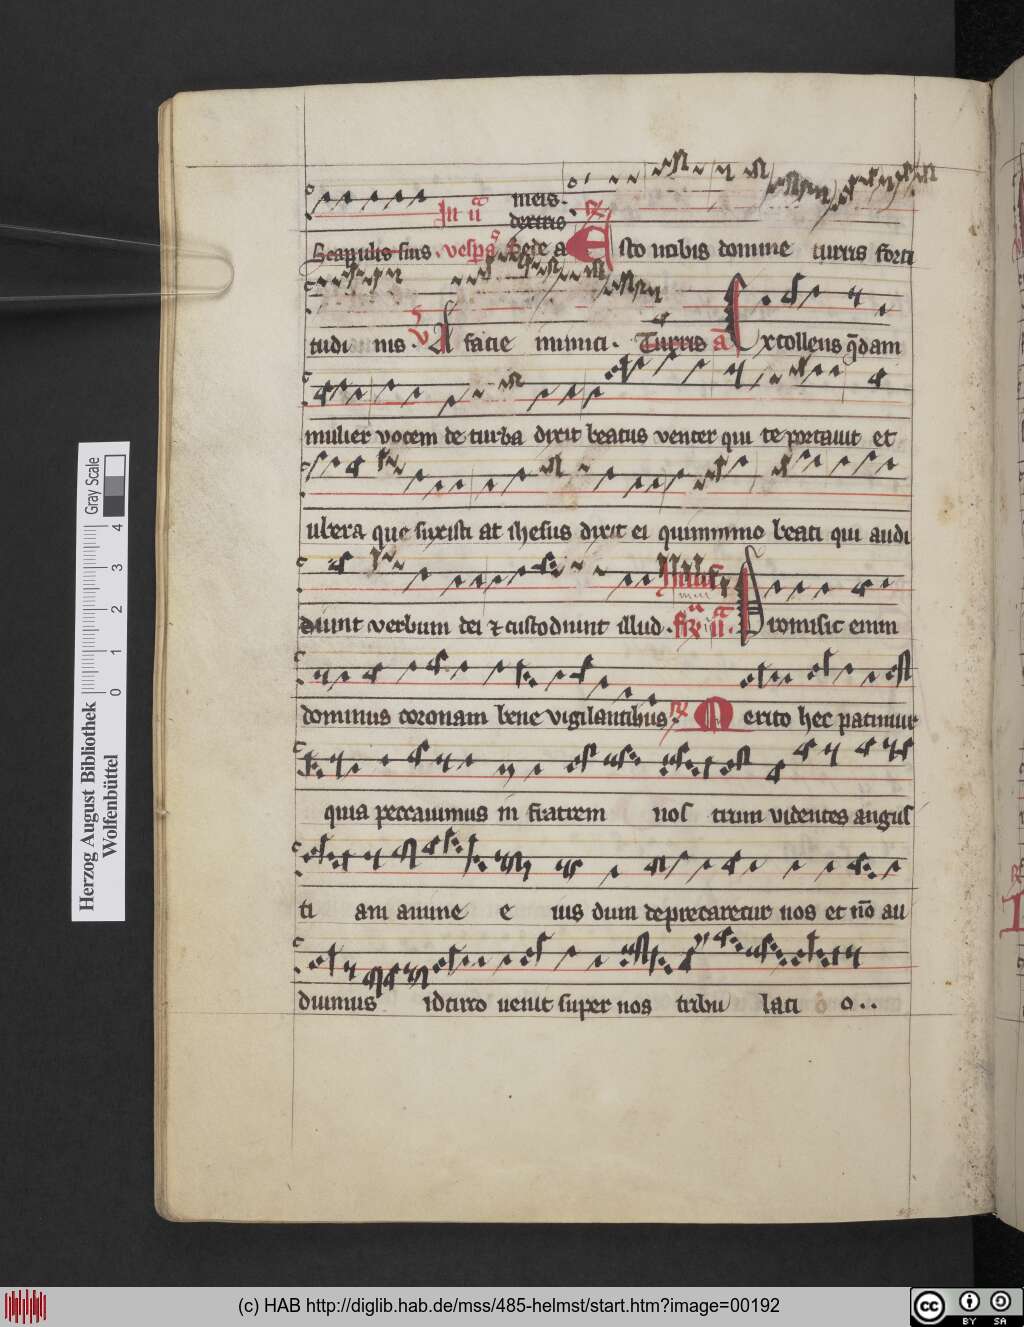 In ii a meis. R
dextris
Scapulis suis. vesp(er)a Sede a Esto nobis domine turris forti
tudi nis. V A facie inimici. Turris a Extollens q̄dam
mulier vocem de turba dixit beatus venter qui te portauit et
ubera que suxisti at ihesus dixit ei quinimmo beati qui audi
diunt verbum dei ⁊ custodiunt illud. ii a. Promisit enim
dominus coronam bene vigilantibus. R Merito hec patimur
quia peccauimus in fratrem nos trum videntes angus
ti am anime e ius dum deprecaretur nos et nō au
diuimus idcirco uenit super nos tribu laci o..
Herzog August Bibliothek
Wolfenbüttel
0 1 2 3 4
Gray Scale
(c) HAB http://diglib.hab.de/mss/485-helmst/start.htm?image=00192
cc BY SA